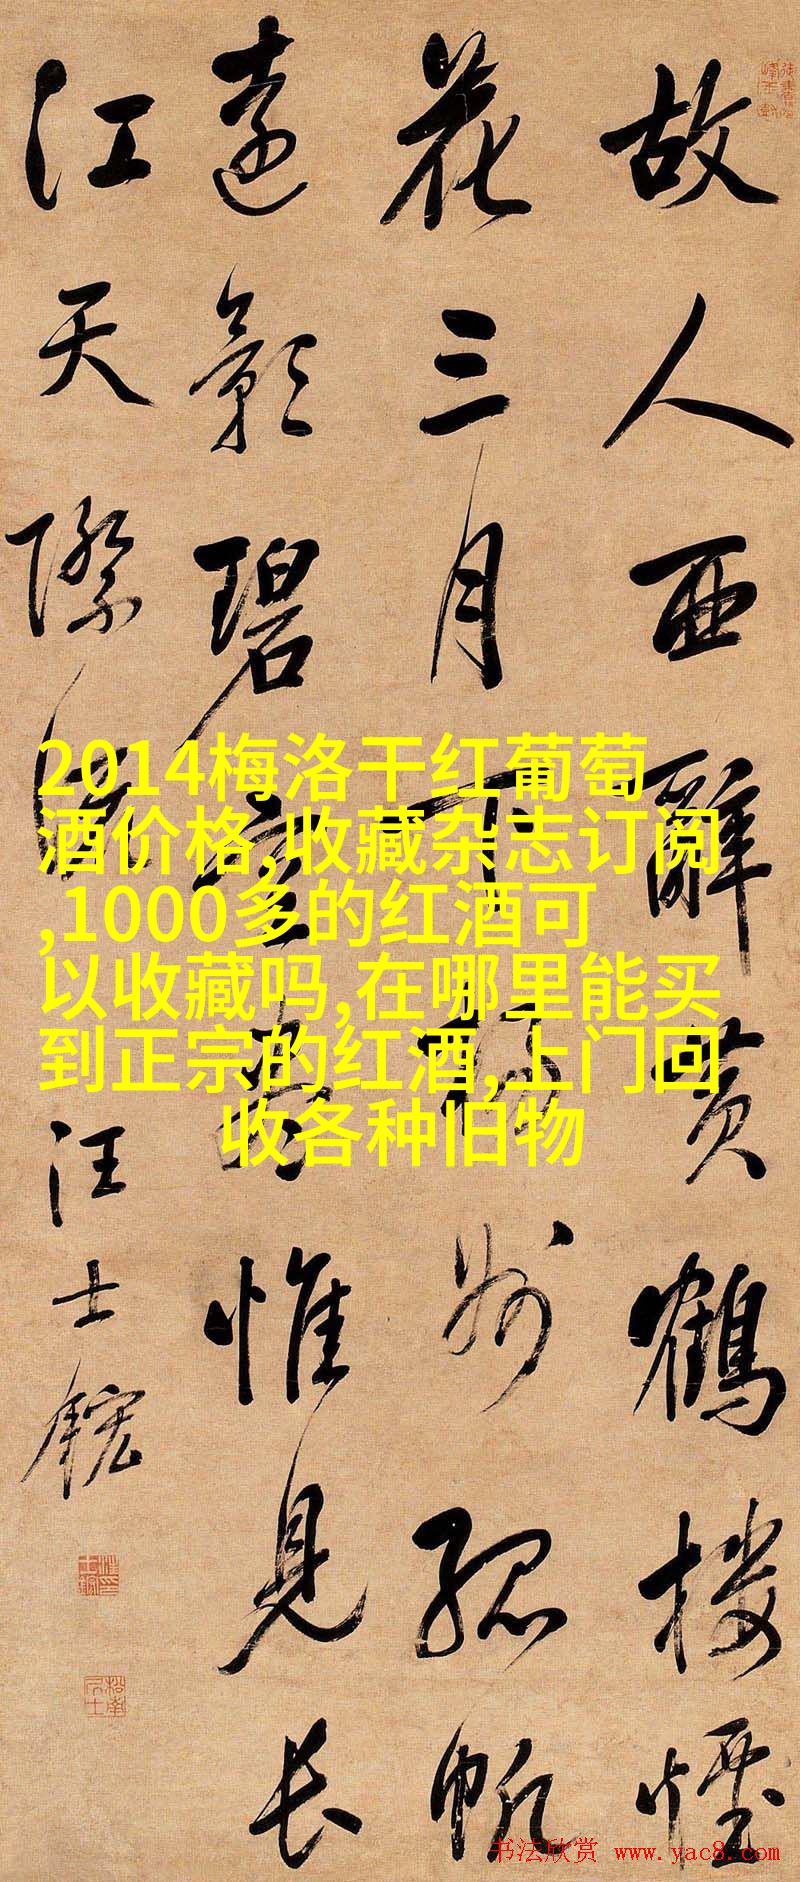 故人西辭黃鶴樓煙
花三月下揚州孤帆
遠影碧空盡惟見長
江天際流
汪士鋐
2014梅洛干红葡萄
酒价格,收藏杂志订阅
,1000多的红酒可
以收藏吗,在哪里能买
到正宗的红酒,上门回
收各种旧物
书法欣赏 www.yac8.com